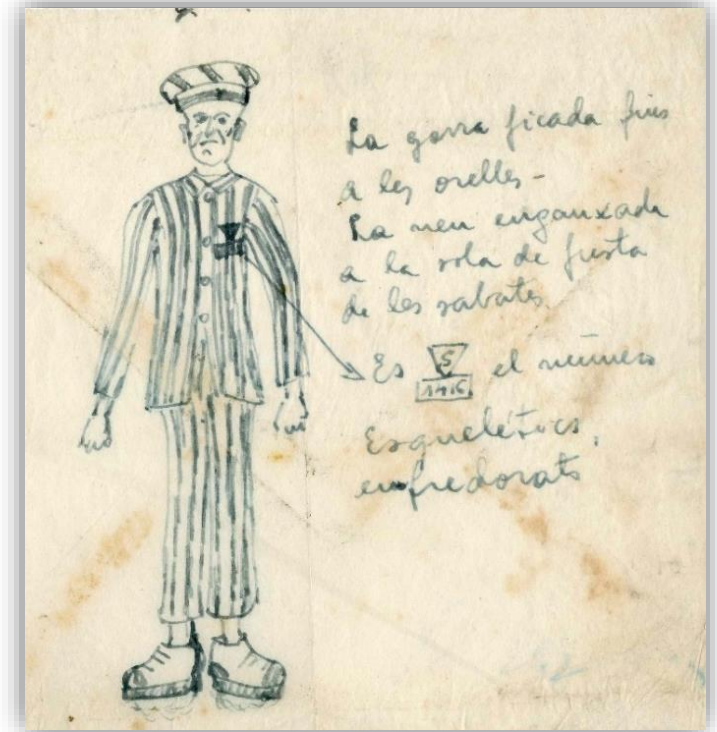 La gorra ficada fins
a les orelles-
La neu enganxada
a la sola de fusta
de les sabates
Es S el número
1416
Esquelétics,
enfredorats